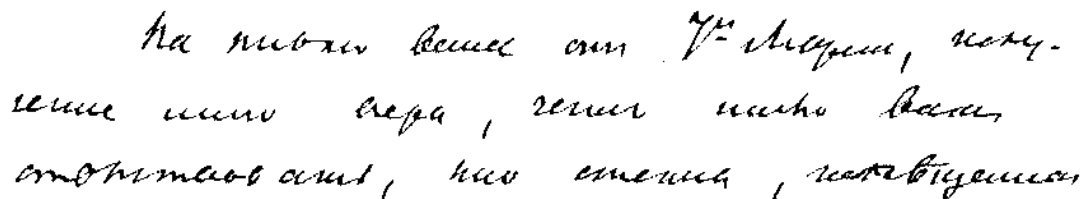 На письмо ваше отъ 7го Марта, полу-
ченное мною вчера, честь имѣю вамъ
отвѣтствовать, что статья, помѣщенная